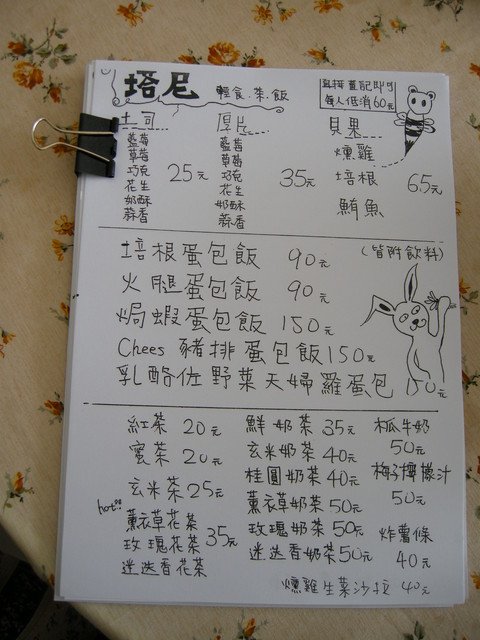 塔尼 輕食.茶.飯
直接畫記即可
每人低消60元
土司
藍莓
草莓
巧克
花生
奶酥
蒜香
25元
厚片
藍莓
草莓
巧克
花生
奶酥
蒜香
35元
貝果
燻雞
培根
鮪魚
65元
(皆附飲料)
培根蛋包飯 90元
火腿蛋包飯 90元
焗蝦蛋包飯 150元
Chees 豬排蛋包飯 150元
乳酪佐野菜天婦羅蛋包 150元
紅茶 20元
蜜茶 20元
玄米茶 25元
hot!!
薰衣草花茶
玫瑰花茶
迷迭香花茶
35元
鮮奶茶 35元
玄米奶茶 40元
桂圓奶茶 40元
薰衣草奶茶 50元
玫瑰奶茶 50元
迷迭香奶茶 50元
木瓜牛奶
50元
梅子檸檬汁
50元
炸薯條
40元
燻雞生菜沙拉 40元